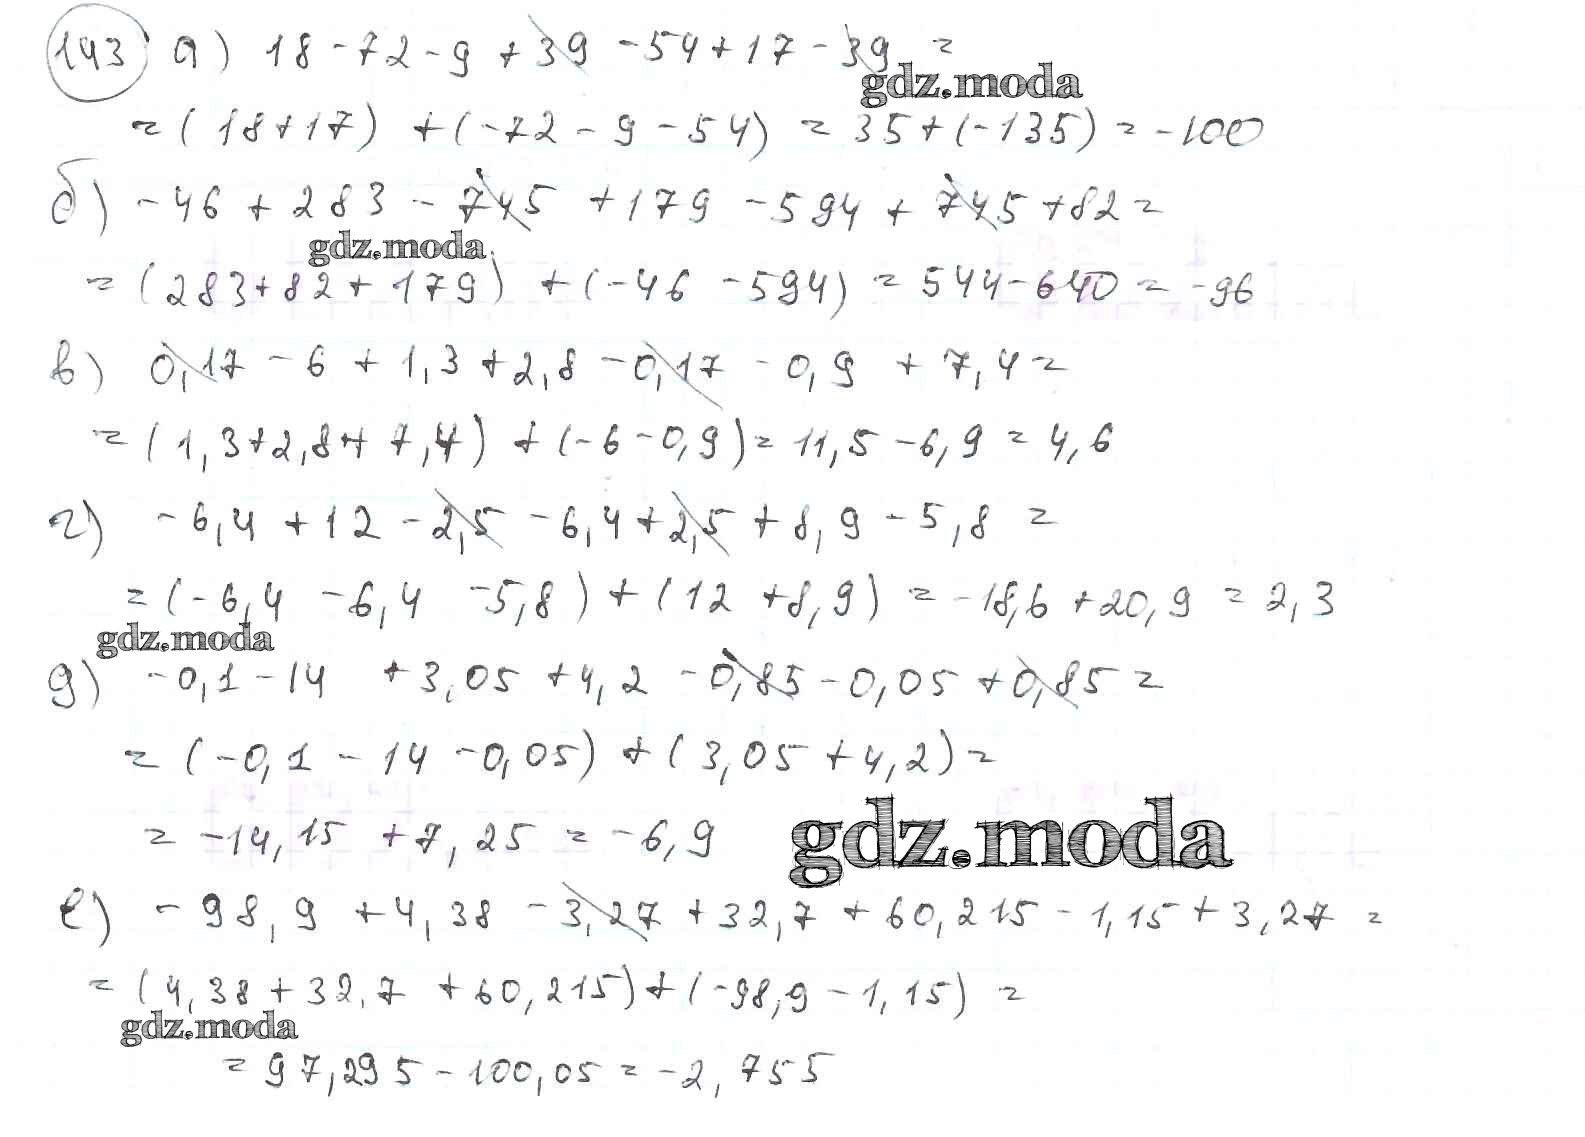 143 а) 18 - 72 - 9 + 39 - 54 + 17 - 39 =
gdz.moda
= (18+17) + (-72 - 9 - 54) = 35 + (-135) = -100
б) -46 + 283 - 745 + 179 - 594 + 745 + 82 =
gdz.moda
= (283+82+179) + (-46 - 594) = 544 - 640 = -96
в) 0,17 - 6 + 1,3 + 2,8 - 0,17 - 0,9 + 7,4 =
= (1,3+2,8+7,4) + (-6 - 0,9) = 11,5 - 6,9 = 4,6
г) -6,4 + 12 - 2,5 - 6,4 + 2,5 + 8,9 - 5,8 =
= (-6,4 - 6,4 - 5,8) + (12 + 8,9) = -18,6 + 20,9 = 2,3
gdz.moda
д) -0,1 - 14 + 3,05 + 4,2 - 0,85 - 0,05 + 0,85 =
= (-0,1 - 14 - 0,05) + (3,05 + 4,2) =
= -14,15 + 7,25 = -6,9
gdz.moda
е) -98,9 + 4,38 - 3,27 + 32,7 + 60,215 - 1,15 + 3,27 =
= (4,38 + 32,7 + 60,215) + (-98,9 - 1,15) =
gdz.moda
= 97,295 - 100,05 = -2,755